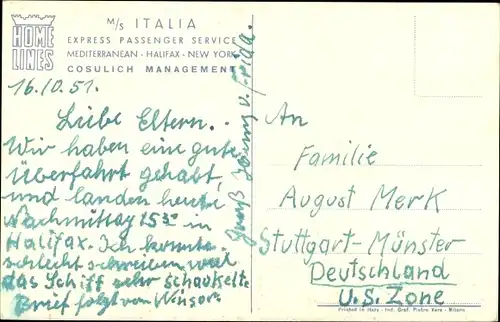 HOME
LINES
M/S ITALIA
EXPRESS PASSENGER SERVICE
MEDITERRANEAN - HALIFAX - NEW YORK
COSULICH MANAGEMENT
16.10.51.
Liebe Eltern..
Wir haben eine gute
Überfahrt gehabt,
und landen heute
Nachmittag 15³⁰ in
Halifax. Ich konnte
schlecht schreiben weil
das Schiff sehr schaukelte.
Brief folgt von Winsor.
Gruß v. Frida.
An
Familie
August Merk
Stuttgart-Münster
Deutschland
U.S. Zone
Printed in Italy - Ind. Graf. Pietro Vera - Milano